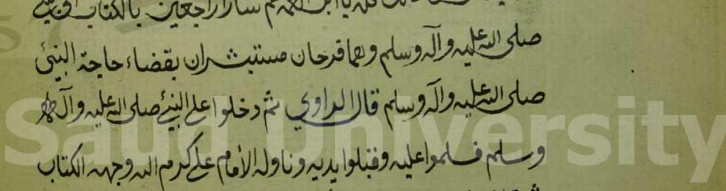 ثم سارا راجعين بالكتاب الى النبي
صلى الله عليه وآله وسلم وهما فرحان مستبشران بقضاء حاجة النبي
صلى الله عليه وآله وسلم قال الراوي ثم دخلوا على النبي صلى الله عليه وآله
وسلم فسلموا عليه وقبلوا يديه وناوله الأمام علي كرم الله وجهه الكتاب
Saud University